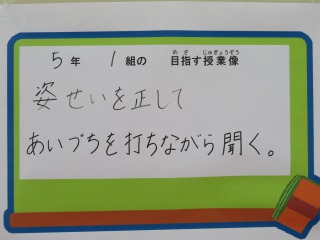 5年 1組の 目指す授業像
姿せいを正して
あいづちを打ちながら聞く。